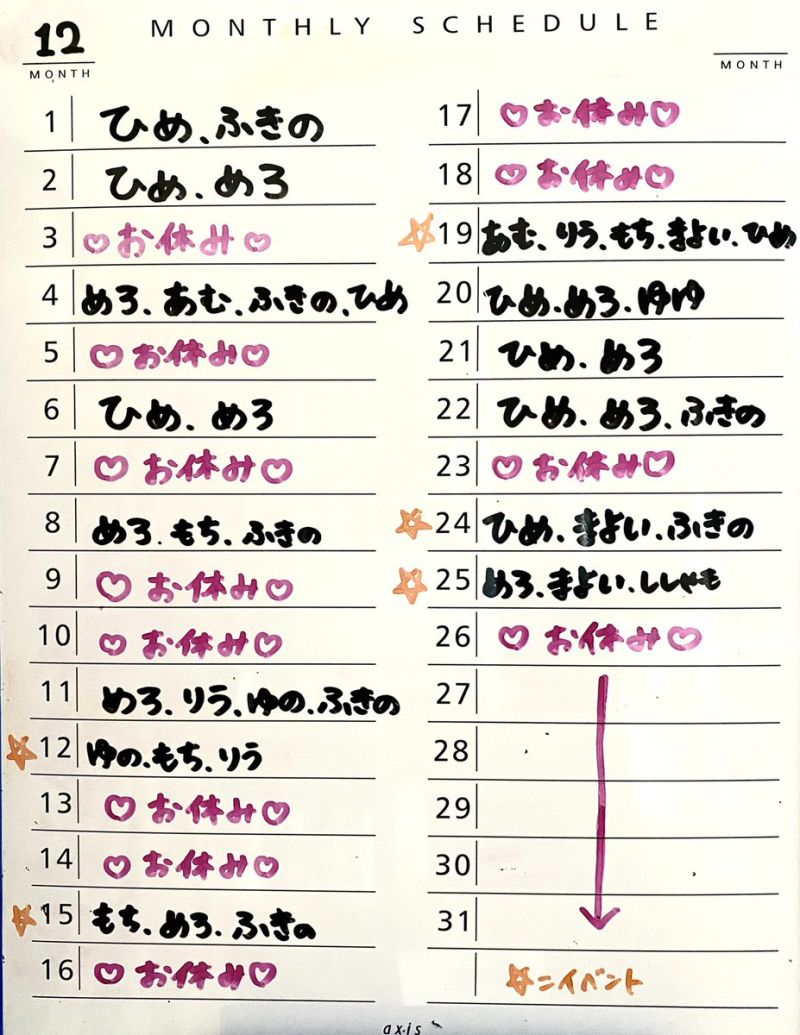 MONTHLY SCHEDULE
12
MONTH
MONTH
1 ひめ、ふきの
2 ひめ、めろ
3 ♡お休み♡
4 めろ、あむ、ふきの、ひめ
5 ♡お休み♡
6 ひめ、めろ
7 ♡お休み♡
8 めろ、もち、ふきの
9 ♡お休み♡
10 ♡お休み♡
11 めろ、りう、ゆの、ふきの
☆12 ゆの、もち、りう
13 ♡お休み♡
14 ♡お休み♡
☆15 もち、めろ、ふきの
16 ♡お休み♡
17 ♡お休み♡
18 ♡お休み♡
☆19 あむ、りう、もち、まよい、ひめ
20 ひめ、めろ、ゆゆ
21 ひめ、めろ
22 ひめ、めろ、ふきの
23 ♡お休み♡
☆24 ひめ、まよい、ふきの
☆25 めろ、まよい、ししゃも
26 ♡お休み♡
27
28
29
30
31
☆=イベント
axis